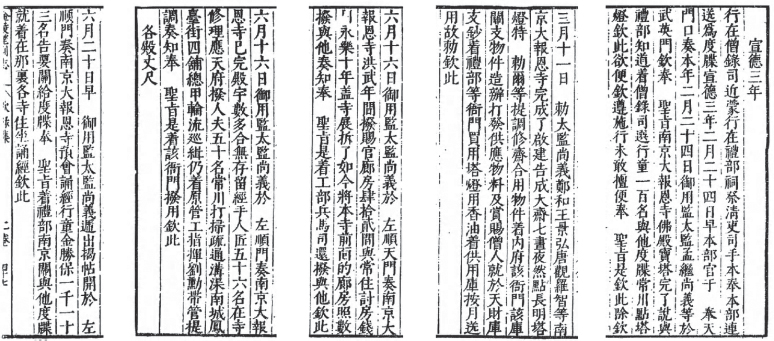 宣德三年
行在僧錄司近蒙行在禮部祠祭淸吏司手本奉本部連
送爲度牒宣德三年二月二十四日早本部官于　奉天
門口奏本年二月二十四日御用監太監孟繼尚義等於
武英門欽奉　聖旨南京大報恩寺佛殿寶塔完了說與
禮部知道着僧錄司選行童一百名與他度牒常川點塔
燈欽此欲便欽遵施行未敢擅便奉　聖旨是欽此除欽
三月十一日　勅太監尚義鄭和王景弘唐觀羅智等南
京大報恩寺完成了啟建告成大齋七晝夜然點長明塔
燈特　勅爾等提調修齋合用物件着內府該衙門該庫
關支物件造辦打發供應物料及賞賜僧人就於天財庫
支鈔着禮部等衙門買用塔燈用香油着供用庫按月送
用故勅欽此
六月十六日御用監太監尚義於　左順天門奏南京大
報恩寺洪武年間撥賜官廊房肆拾貳間與常住討房錢
永樂十年蓋寺展拆了如今將本寺前面的廊房照數
撥與他奏知奉　聖旨是着工部兵馬司還撥與他欽此
六月十六日御用監太監尚義於　左順門奏南京大報
恩寺已完殿宇數多合無存留經手人匠五十六名在寺
修理應天府撥人夫五十名常川打掃疏通溝渠南城鳳
臺街四舖總甲輪流巡緝仍着原管工指揮劉勳帶管提
調奏知奉　聖旨是着該衙門撥用欽此
各殿丈尺
六月二十日早　御用監太監尚義遞出揭帖開於　左
順門奏南京大報恩寺預會誦經行童金勝保一千一十
三名告要關給度牒奉　聖旨着禮部南京關與他度牒
就着在那裏各寺住坐誦經欽此